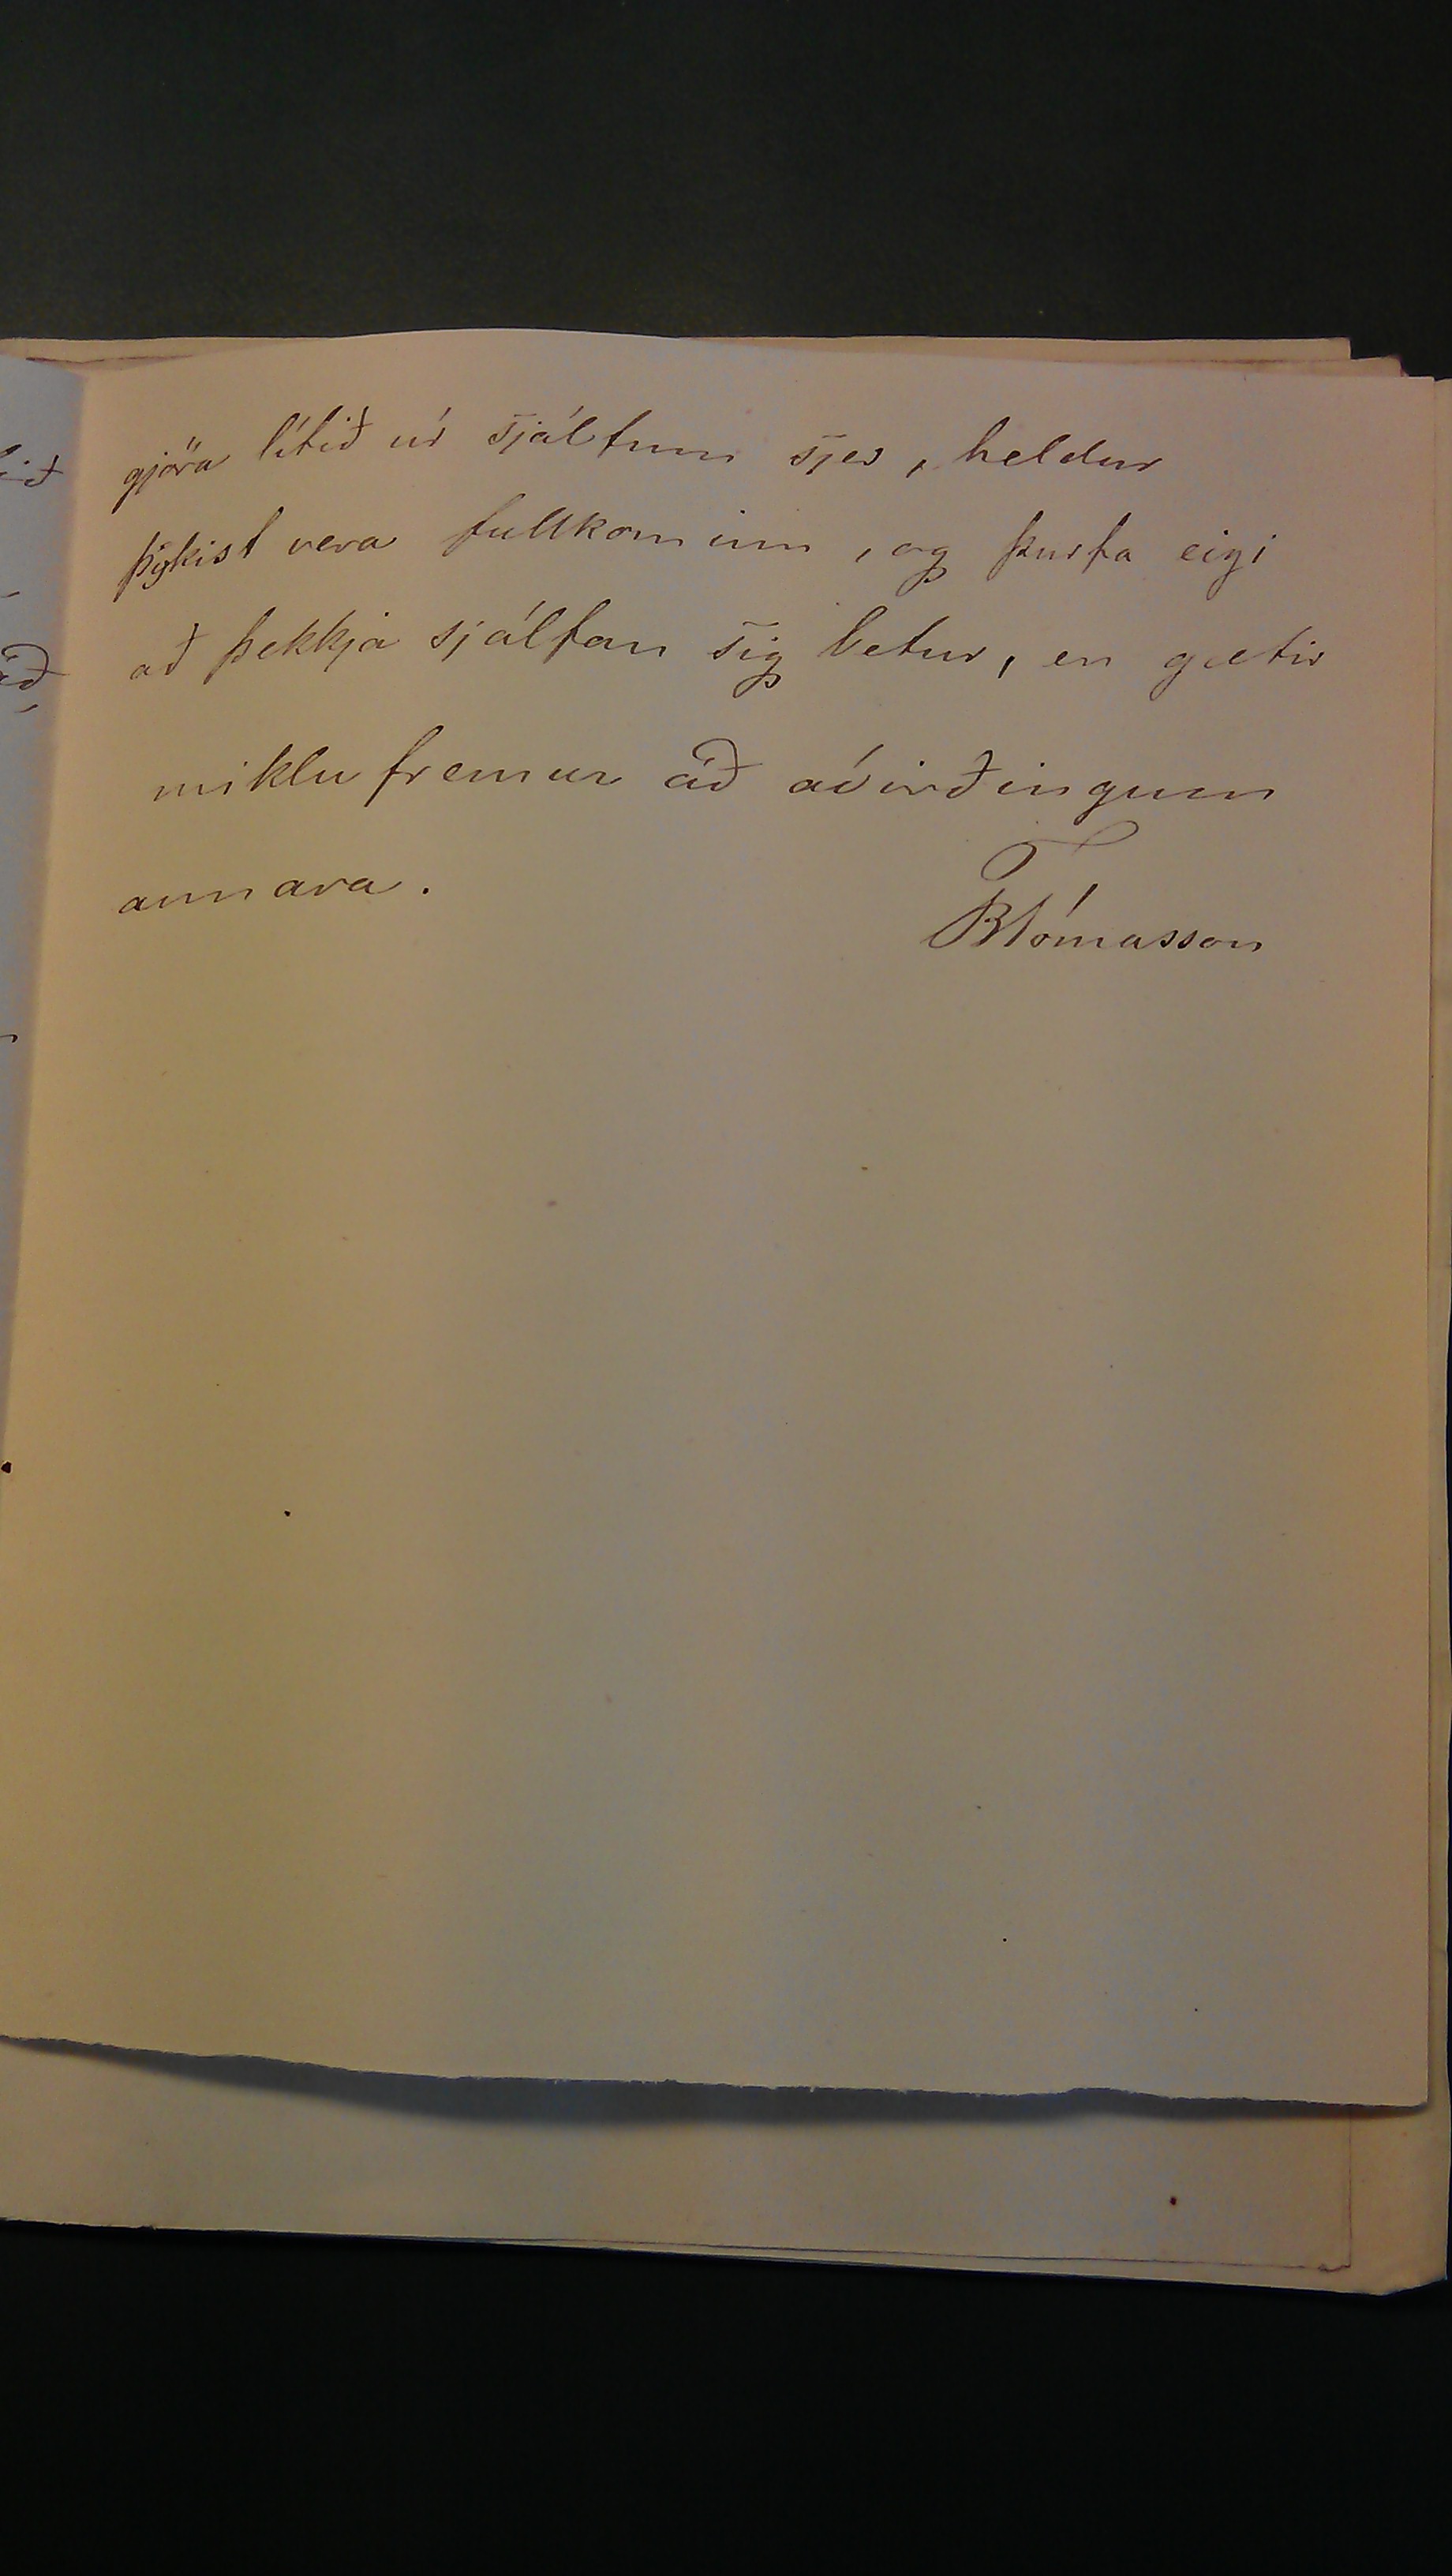 gjöra lítið úr sjálfum sjer, heldur
þykist vera fullkominn, og þurfa eigi
að þekkja sjálfan sig betur, en gætir
miklu fremur að ávirðingum
annara.
BTómasson